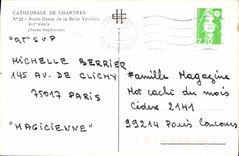 CATHÉDRALE DE CHARTRES
Nº 22 - Notre-Dame de la Belle Verrière
XIIe siècle
(Partie supérieure)
2,20
"QT" S V P
MICHELLE BERRIER
145 AV. DE CLICHY
75017 PARIS
"MAGICIENNE"
Famille Magazine
Mot caché du mois
Cidex 2141
99214 Paris Concours